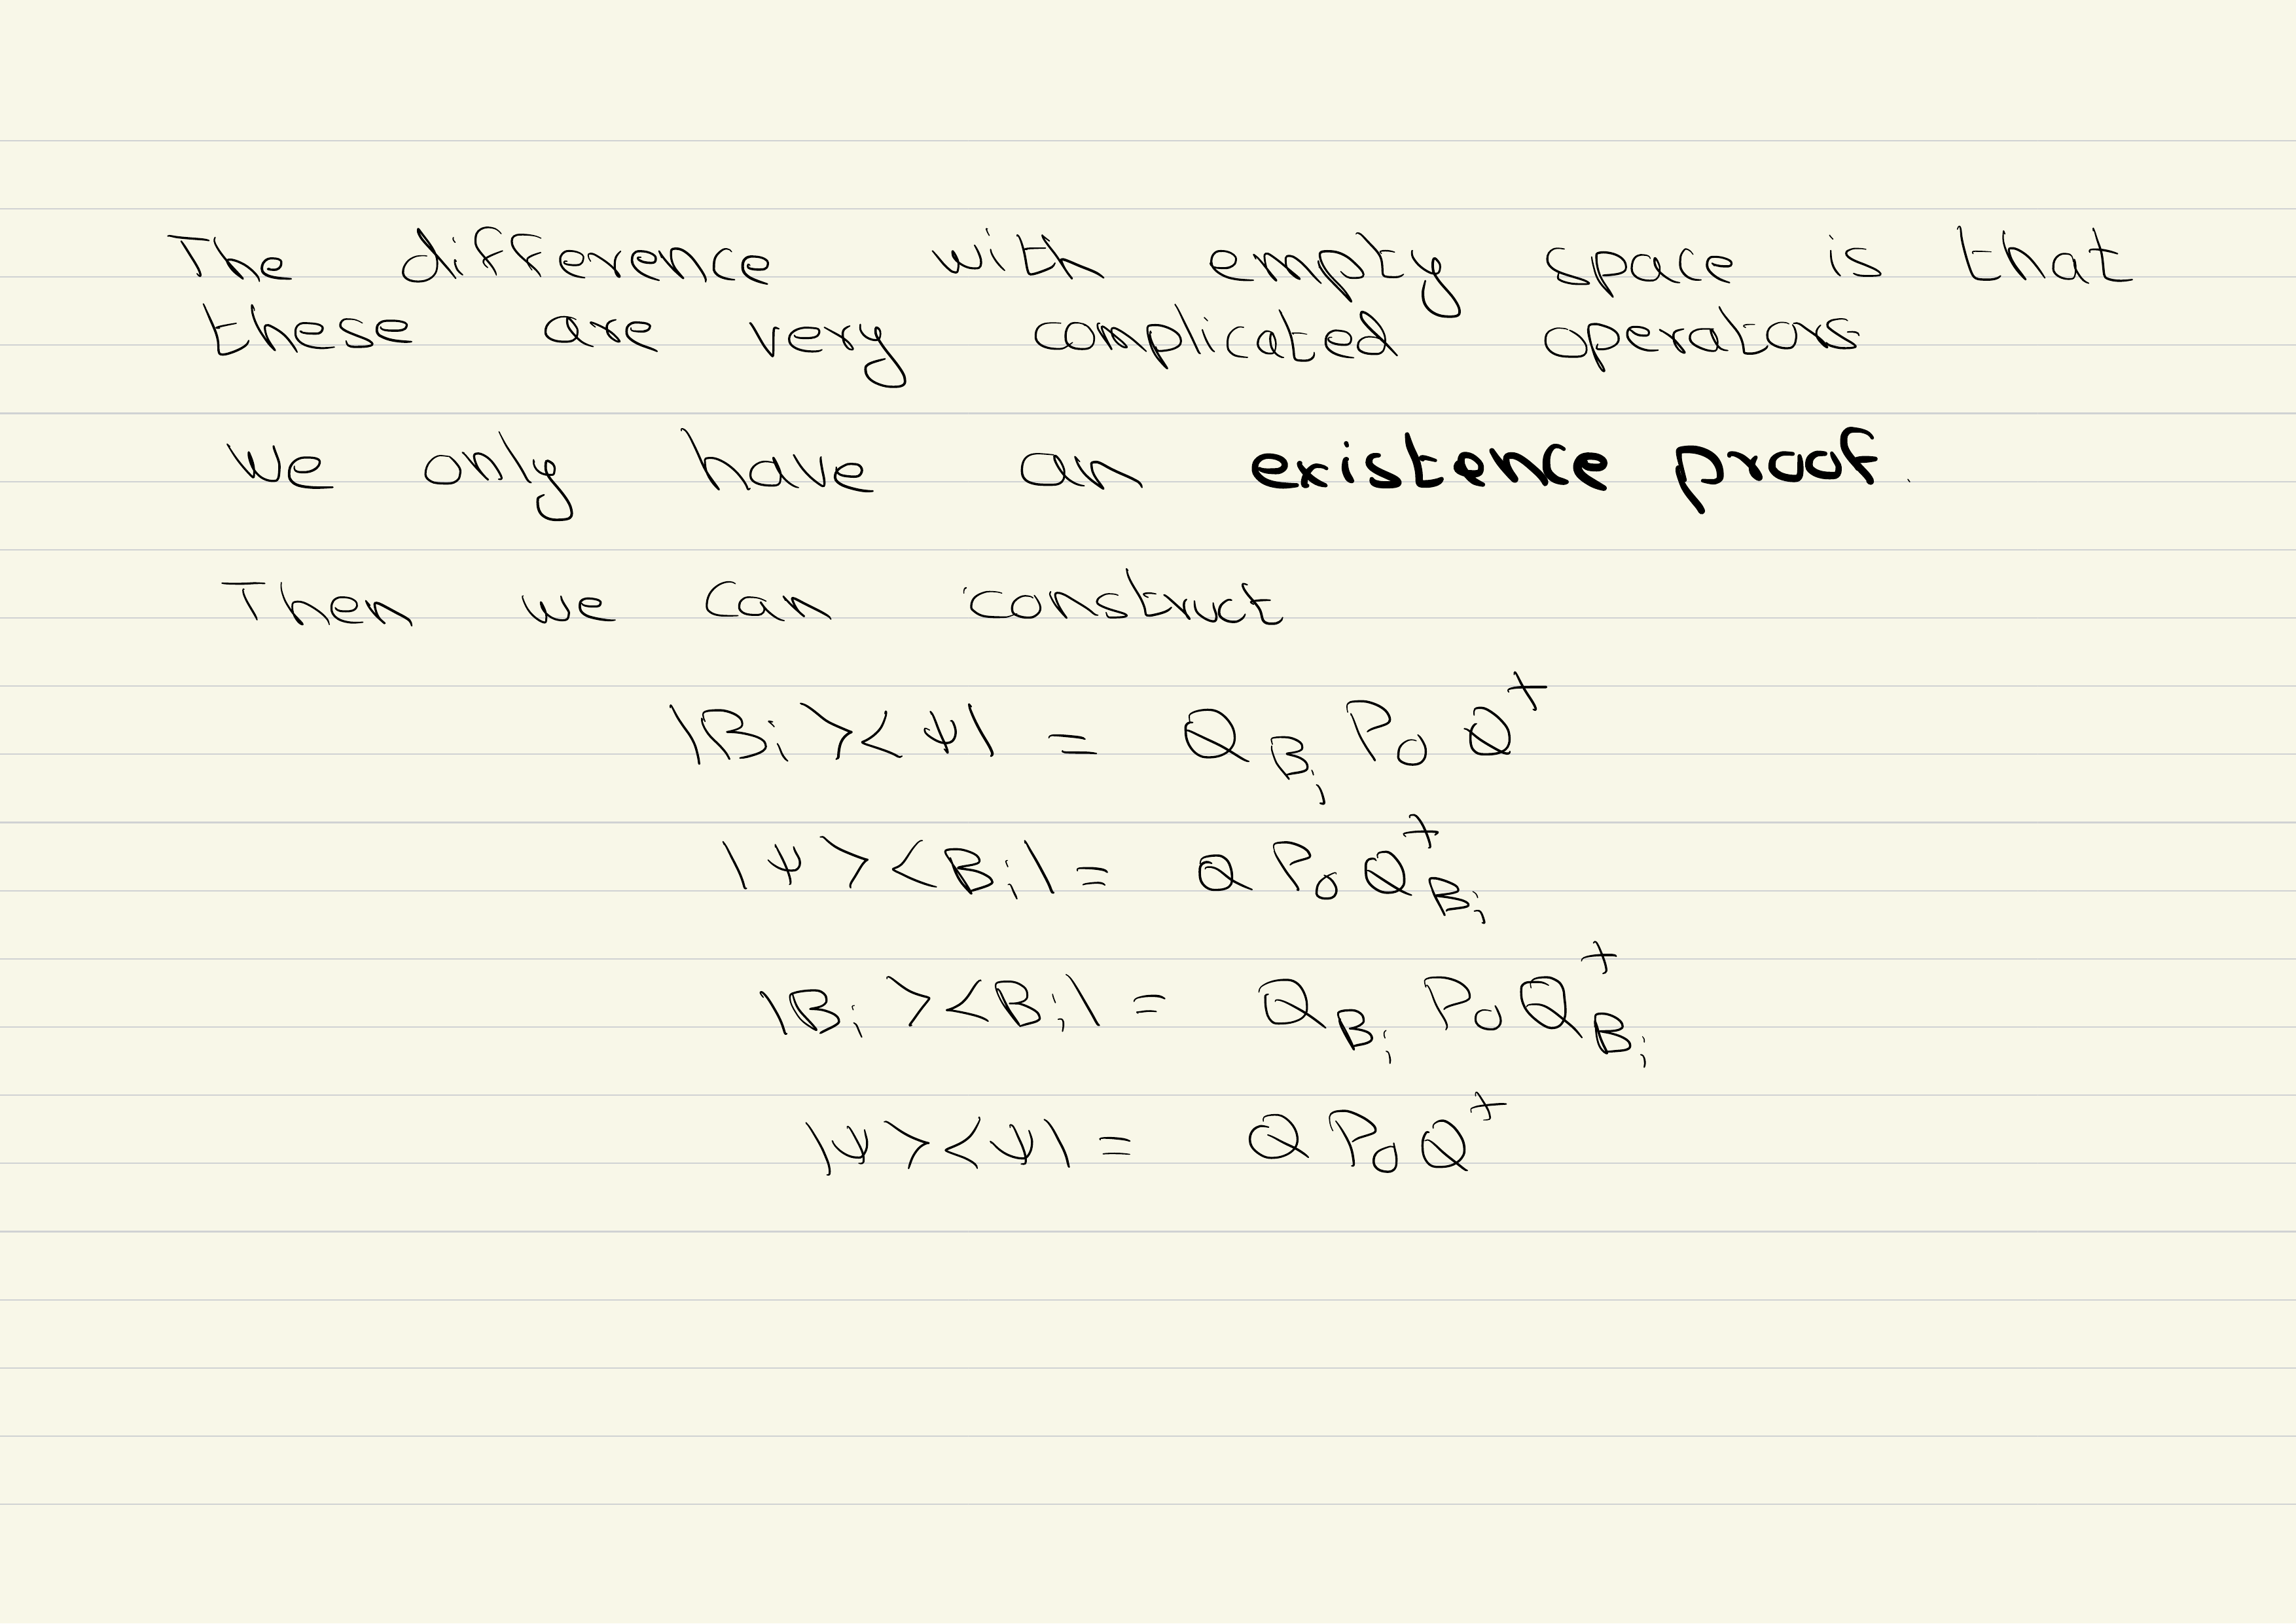 The difference with empty space is that
these are very complicated operators
We only have an existence proof.
Then we can construct
|B_i><ψ| = Q_{B_i} P_0 Q^†
|ψ><B_i| = Q P_0 Q^†_{B_i}
|B_i><B_j| = Q_{B_i} P_0 Q^†_{B_j}
|ψ><ψ| = Q P_0 Q^†